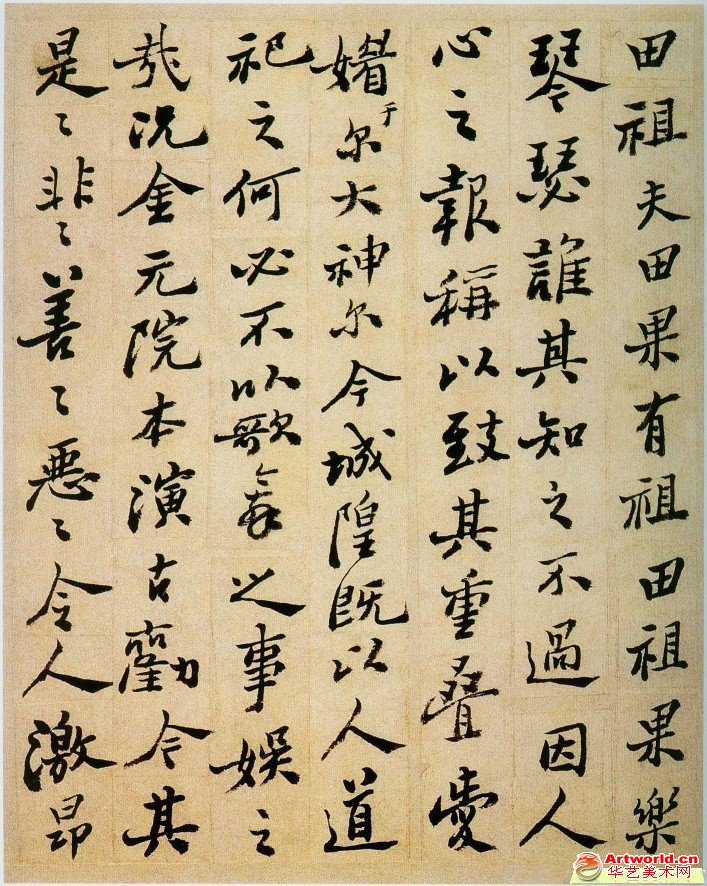 田祖夫田果有祖田祖果樂
琴瑟誰其知之不過因人
心之報稱以致其重疊愛
媚于尔大神尔今城隍既以人道
祀之何必不以歌舞之事娛之
哉况金元院本演古勸今其
是〻非〻善〻惡〻令人激昂
Artworld.cn
华艺美术网